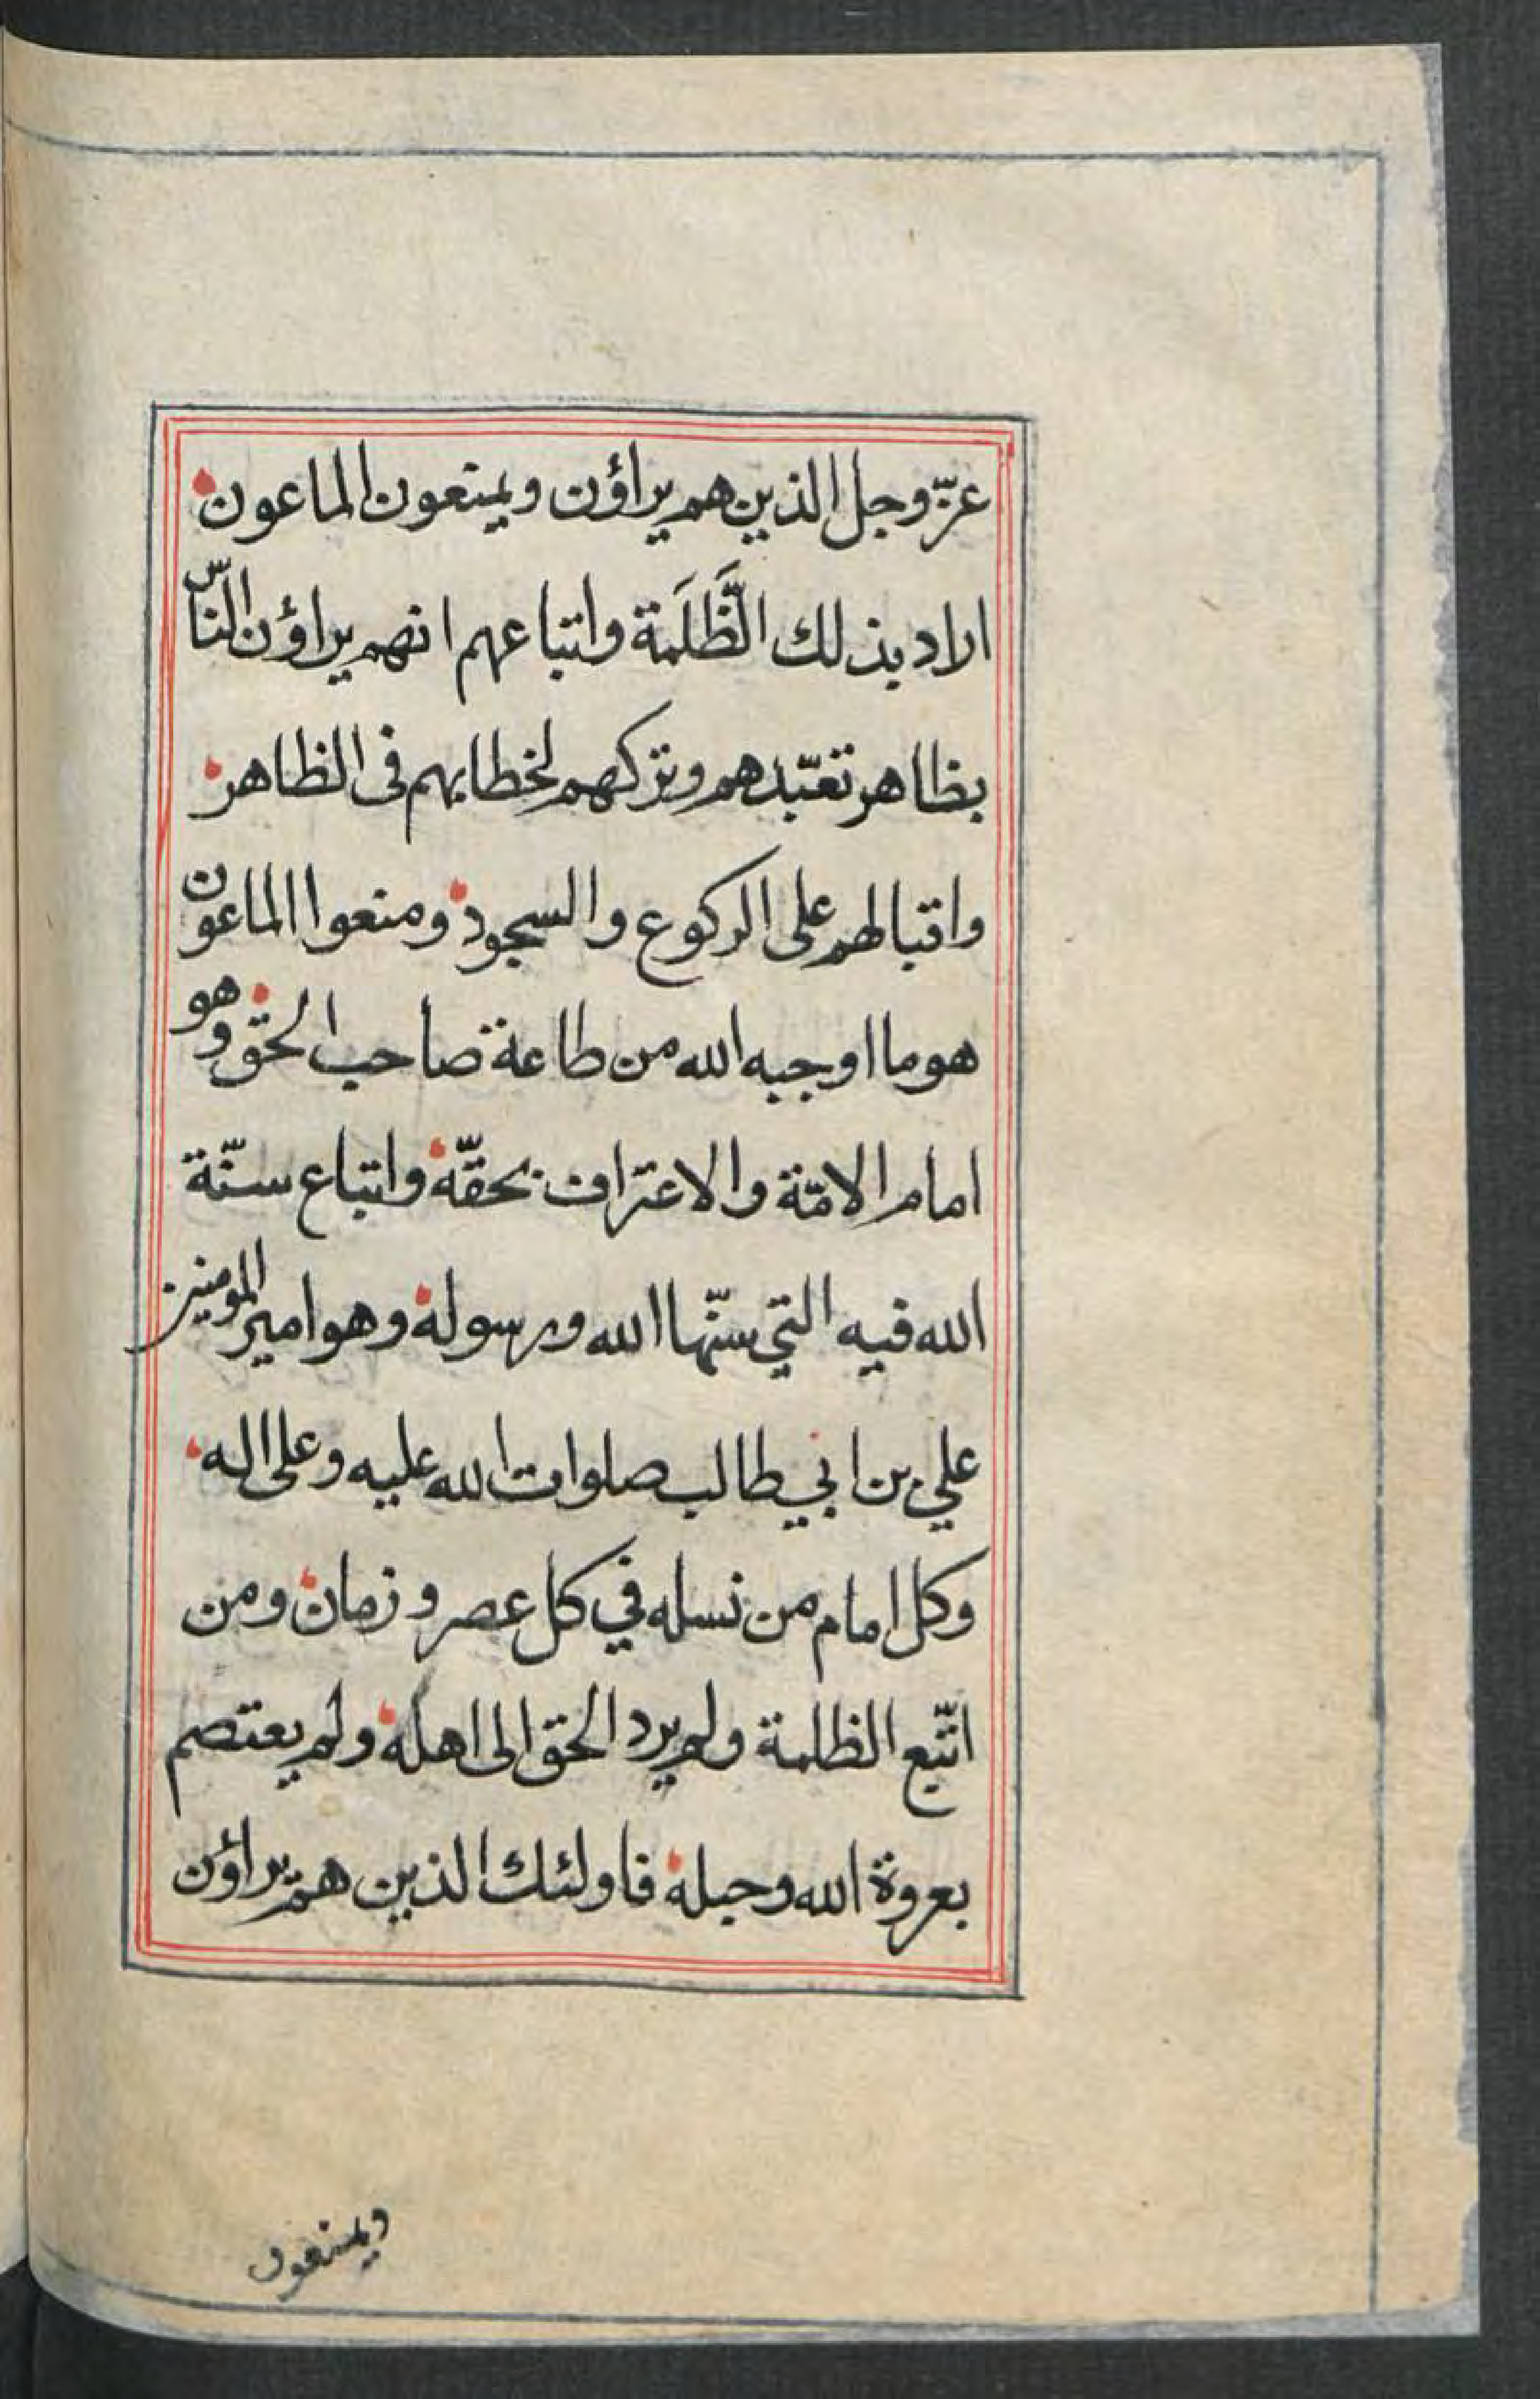 عزّ وجل الذين هم يراؤن ويمنعون الماعون
اراد بذلك الظَّلَمة واتباعهم انهم يراؤن النّاس
بظاهر تعبّدهم وتركهم لخطابهم فى الظاهر
واقبالهم على الركوع والسجود ومنعوا الماعون
هو ما اوجبه الله من طاعة صاحب الحق وهو
امام الامّة والاعتراف بحقّه واتباع سنّة
الله فيه التي سنّها الله ورسوله وهو امير المومنين
علي بن ابي طالب صلوات الله عليه وعلى اله
وكل امام من نسله في كل عصر وزمان ومن
اتّبع الظلمة ولم يرد الحق الى اهله ولم يعتصم
بعروة الله وحبله فاولئك الذين هم يراؤن
ويمنعون